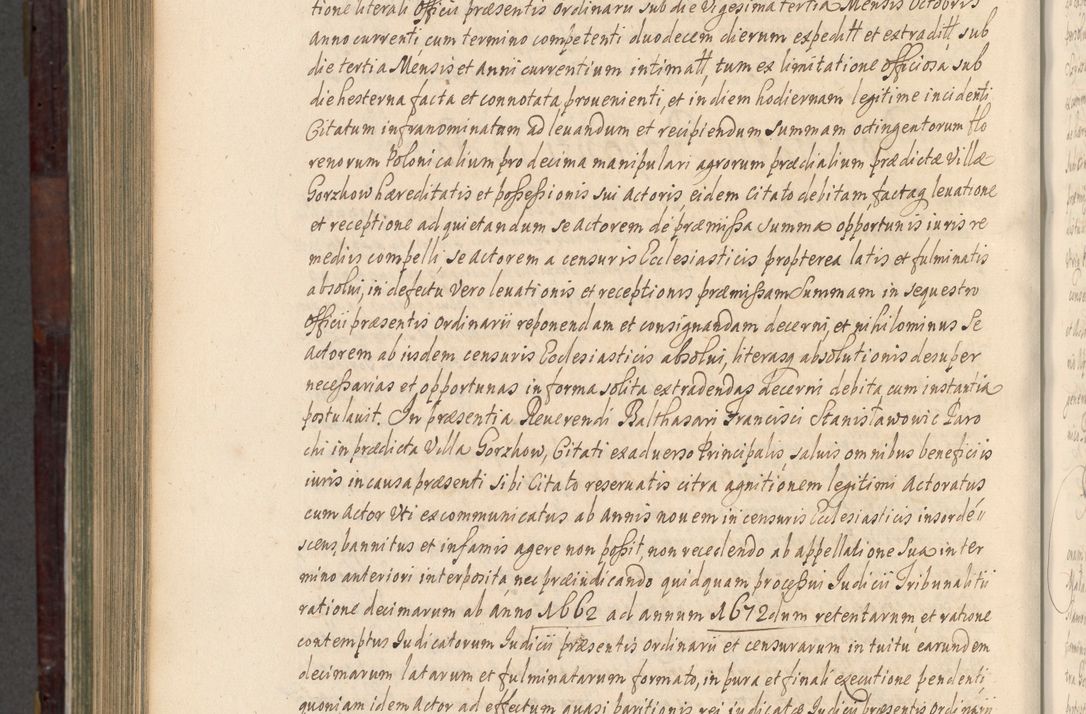 tione literali Officii præsentis Ordinarii sub die Vigesima tertia Mensis Octobris
anno currenti cum termino competenti duodecem dierum expeditt et extraditt, sub
die tertia Mensis et Anni currentium intimatt, tum ex limitatione Officiosa sub
die hesterna facta et connotata prouenienti, et in diem hodiernam legitime incidenti
Citatum infranominatum ad leuandum et recipiendum Summam octingentorum flo
renorum Polonicalium pro decima manipulari agrorum prædialium prædictæ Villæ
Gorzhow hæreditatis et possessionis sui Actoris, eidem Citato debitam factaq leuatione
et receptione ad quietandum se Actorem de præmissa Summa opportunis iuris re
mediis compelli, se Actorem a censuris Ecclesiasticis propterea latis et fulminatis
absolui, in defectu Vero leuationis et receptionis præmissam Summam in sequestro
Officii præsentis Ordinarii reponendam et consignandam decerni, et nihilominus Se
Actorem ab iisdem censuris Ecclesiasticis absolui, literasq absolutionis desuper
necessarias et opportunas in forma solita extradendas decerni debita cum instantia
postulauit. In præsentia Reuerendi Balthasari Francisci Stanisławowic Paro
chi in prædicta Villa Gorzhow, Citati ex aduerso Principalis, saluis omnibus beneficiis
iuris in causa præsenti sibi Citato reseruatis citra agnitionem legitimi Actoratus
cum Actor Uti excommunicatus ab Annis nouem in censuris Ecclesiasticis insorde
scens, bannitus et infamis agere non possit, non recedendo ab appellatione Sua in ter
mino anteriori interposita, nec præiudicando quidquam processui Iudicii Tribunalitii
ratione decimarum ab anno 1662 ad annum 1672dum retentarum, et ratione
contemptus Iudicatorum Iudicii præsentis Ordinarii et censurarum intuitu earundem
decimarum latarum et fulminatarum formato, in pura et finali executione pendenti
quoniam idem Actor ad effectum quasi paritionis rei iudicatæ Iudicii præsentis Ordinarii